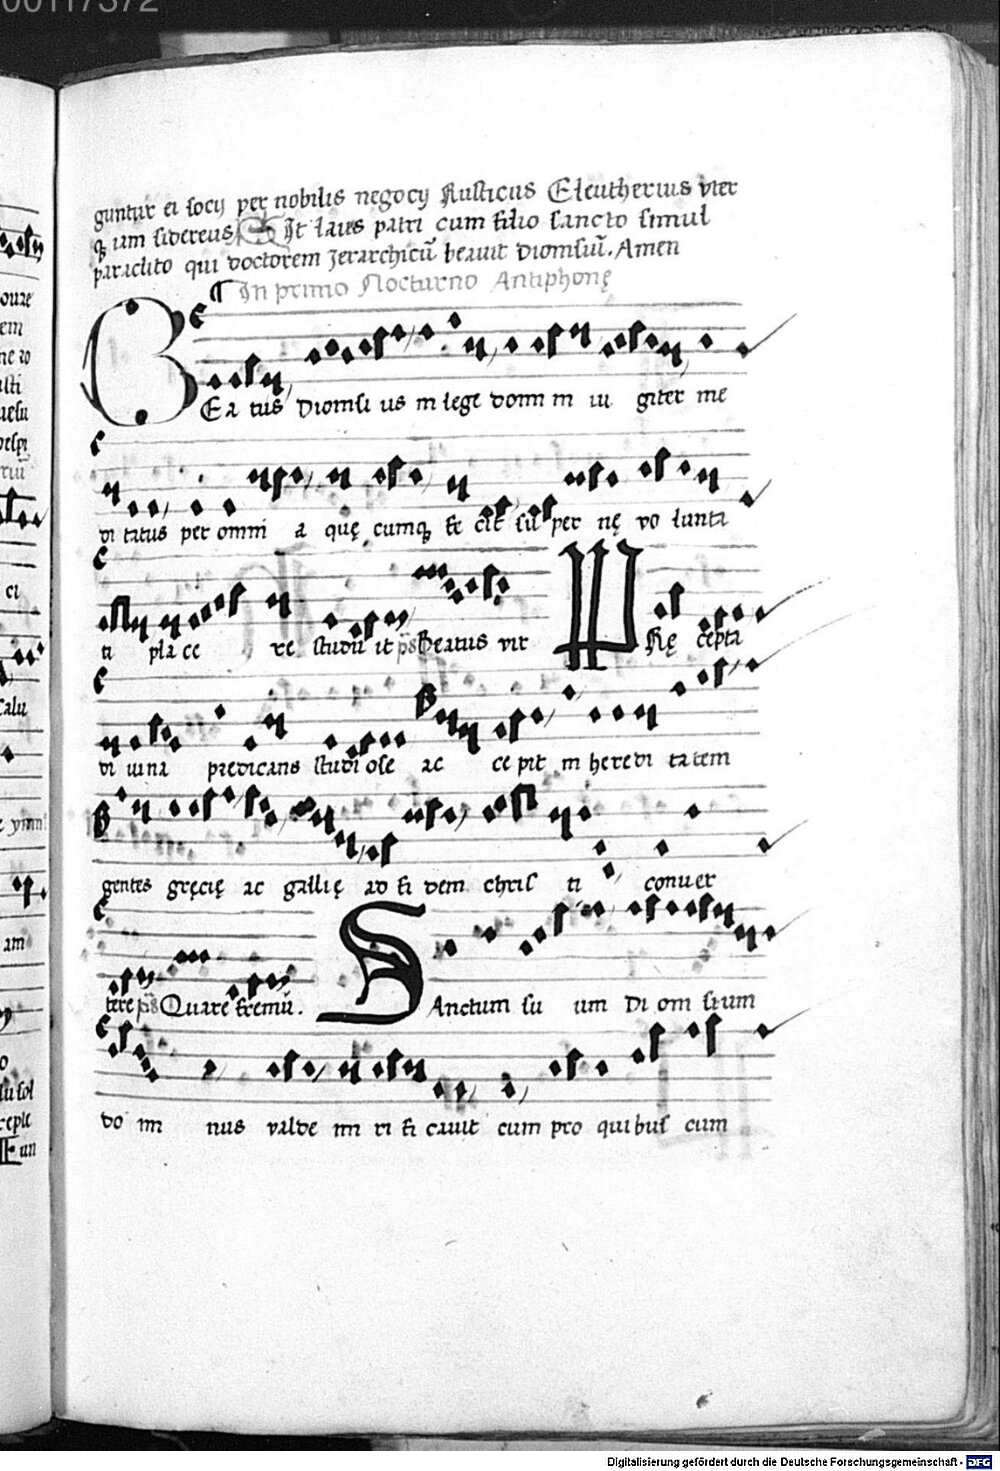 00117372
guntur ei socÿ per nobilis negocÿ Rusticus Eleutherius vter
qꝫ iam sidereus Sit laus patri cum filio sancto simul
paraclito qui doctorem Jerarchicũ beauit dionisiũ. Amen
¶ In primo Nocturno Antiphonę
BEa tus Dionisi us in lege domi ni iu giter me
di tatus per omni a quę cumqꝫ fe cit sũ per nę vo lunta
ti pla ce re studu it ps Beatus vir PRę cepta
di uina predicans studi ose ac ce pit in heredi tatem
gentes gręcię ac gallię ad fi dem chris ti conuer
tere ps Quare fremũ. SAnctum su um Di oni sium
do mi nus valde mi ri fi cauit cum pro quibus cum
Digitalisierung gefördert durch die Deutsche Forschungsgemeinschaft - DFG